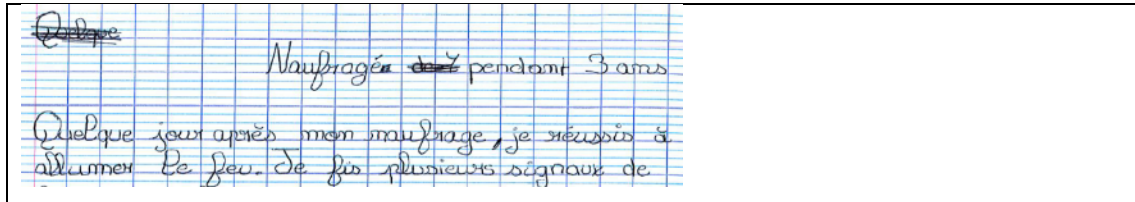 Quelque
Naufragé pendant 3 ans
Quelque jour après mon naufrage, je réussis à
allumer le feu. Je fis plusieurs signaux de